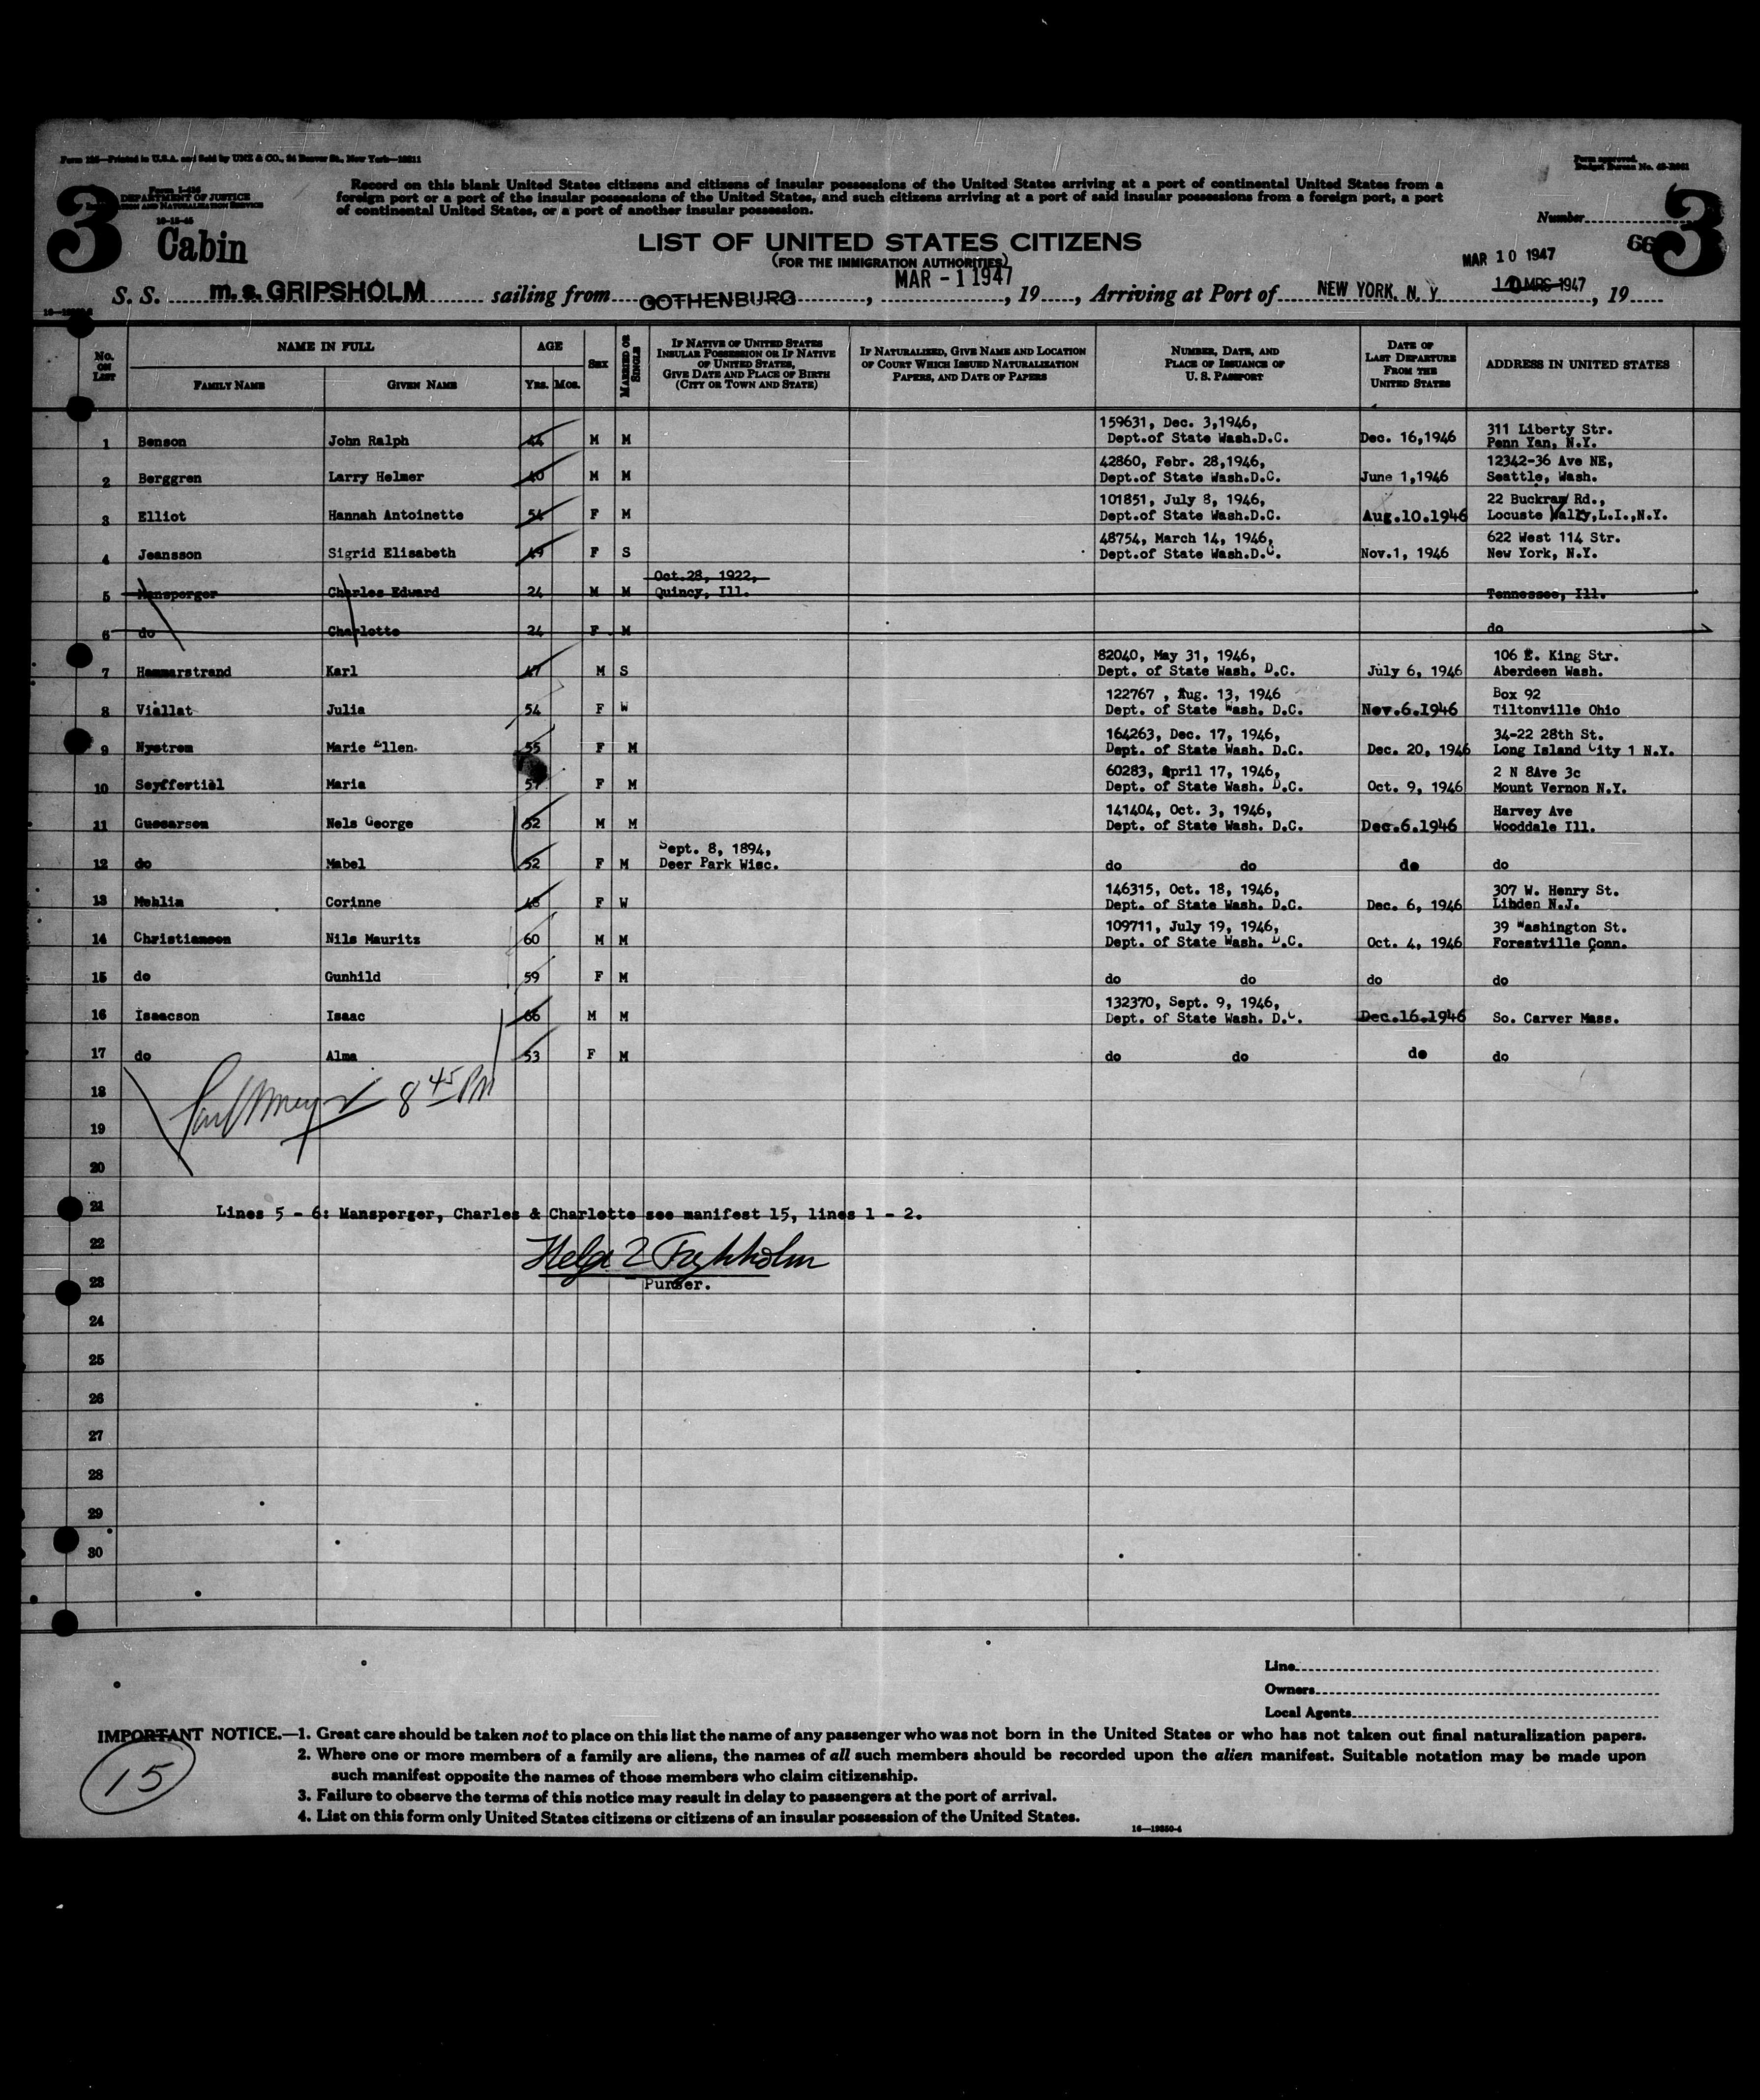 Form 126—Printed in U.S.A. and Sold by UNZ & CO., 24 Beaver St., New York—
Form approved.
Budget Bureau No.
3
Form I-416
DEPARTMENT OF JUSTICE
IMMIGRATION AND NATURALIZATION SERVICE
10-15-45
Cabin
Record on this blank United States citizens and citizens of insular possessions of the United States arriving at a port of continental United States from a
foreign port or a port of the insular possessions of the United States, and such citizens arriving at a port of said insular possessions from a foreign port, a port
of continental United States, or a port of another insular possession.
Number
3
66
LIST OF UNITED STATES CITIZENS
(FOR THE IMMIGRATION AUTHORITIES)
MAR 10 1947
S. S. m.s. GRIPSHOLM sailing from GOTHENBURG, MAR - 1 1947, 19, Arriving at Port of NEW YORK, N. Y 10 MRS 1947, 19
No. ON LIST
NAME IN FULL
FAMILY NAME
GIVEN NAME
AGE
Yrs. Mos.
SEX
MARRIED OR SINGLE
IF NATIVE OF UNITED STATES INSULAR POSSESSION OR IF NATIVE OF UNITED STATES, GIVE DATE AND PLACE OF BIRTH (CITY OR TOWN AND STATE)
IF NATURALIZED, GIVE NAME AND LOCATION OF COURT WHICH ISSUED NATURALIZATION PAPERS, AND DATE OF PAPERS
NUMBER, DATE, AND PLACE OF ISSUANCE OF U. S. PASSPORT
DATE OF LAST DEPARTURE FROM THE UNITED STATES
ADDRESS IN UNITED STATES
159631, Dec. 3,1946, 311 Liberty Str.
1 Benson John Ralph 44 M M Dept.of State Wash.D.C. Dec. 16,1946 Penn Yan, N.Y.
42860, Febr. 28,1946, 12342-36 Ave NE,
2 Berggren Larry Helmer 40 M M Dept.of State Wash.D.C. June 1,1946 Seattle, Wash.
101851, July 8, 1946, 22 Buckram Rd.,
3 Elliot Hannah Antoinette 54 F M Dept.of State Wash.D.C. Aug.10.1946 Locuste Vally,L.I.,N.Y.
48754, March 14, 1946, 622 West 114 Str.
4 Jeansson Sigrid Elisabeth 49 F S Dept.of State Wash.D.C. Nov.1, 1946 New York, N.Y.
Oct.28, 1922,
5 Mansperger Charles Edward 24 M M Quincy, Ill. Tennessee, Ill.
6 do Charlotte 24 F M do
82040, May 31, 1946, 106 E. King Str.
7 Hammarstrand Karl 47 M S Dept. of State Wash. D.C. July 6, 1946 Aberdeen Wash.
122767 , Aug. 13, 1946 Box 92
8 Viallat Julia 54 F W Dept. of State Wash. D.C. Nov.6.1946 Tiltonville Ohio
164263, Dec. 17, 1946, 34-22 28th St.
9 Nystrom Marie Ellen. 55 F M Dept. of State Wash. D.C. Dec. 20, 1946 Long Island City 1 N.Y.
60283, April 17, 1946, 2 N 8Ave 3c
10 Maria 57 F M Dept. of State Wash. D.C. Oct. 9, 1946 Mount Vernon N.Y.
141404, Oct. 3, 1946, Harvey Ave
11 Nels George 52 M M Dept. of State Wash. D.C. Dec.6.1946 Wooddale Ill.
Sept. 8, 1894,
12 do Mabel 52 F M Deer Park Wisc. do do do do
146315, Oct. 18, 1946, 307 W. Henry St.
13 Mehlin Corinne 48 F W Dept. of State Wash. D.C. Dec. 6, 1946 Linden N.J.
109711, July 19, 1946, 39 Washington St.
14 Christianson Nils Mauritz 60 M M Dept. of State Wash. D.C. Oct. 4, 1946 Forestville Conn.
15 do Gunhild 59 F M do do do do
132370, Sept. 9, 1946,
16 Isaacson Isaac 66 M M Dept. of State Wash. D.C. Dec.16.1946 So. Carver Mass.
17 do Alma 53 F M do do do do
18
8 45 PM
19
20
21
Lines 5 - 6: Mansperger, Charles & Charlotte see manifest 15, lines 1 - 2.
22
23
Purser.
24
25
26
27
28
29
30
Line
Owners
Local Agents
IMPORTANT NOTICE.—1. Great care should be taken not to place on this list the name of any passenger who was not born in the United States or who has not taken out final naturalization papers.
2. Where one or more members of a family are aliens, the names of all such members should be recorded upon the alien manifest. Suitable notation may be made upon
such manifest opposite the names of those members who claim citizenship.
3. Failure to observe the terms of this notice may result in delay to passengers at the port of arrival.
4. List on this form only United States citizens or citizens of an insular possession of the United States.
15
16—19850-4